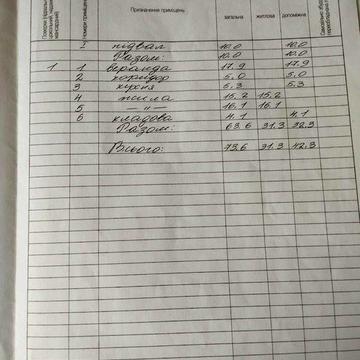 Призначення приміщень загальна житлова допоміжна
I підвал 10.0 10.0
Разом: 10.0 10.0
1 1 веранда 17.9 17.9
2 коридор 5.0 5.0
3 кухня 5.3 5.3
4 жила 15.2 15.2
5 — " — 16.1 16.1
6 кладова 4.1 4.1
Разом: 63.6 31.3 32.3
Всього: 73.6 31.3 42.3